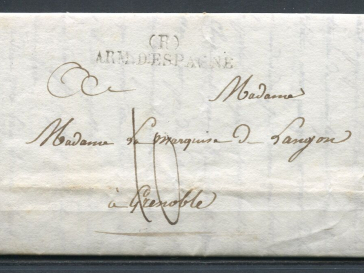 (R)
ARM.D'ESPAGNE
Madame
Madame La Marquise de Langon
10
à Grenoble